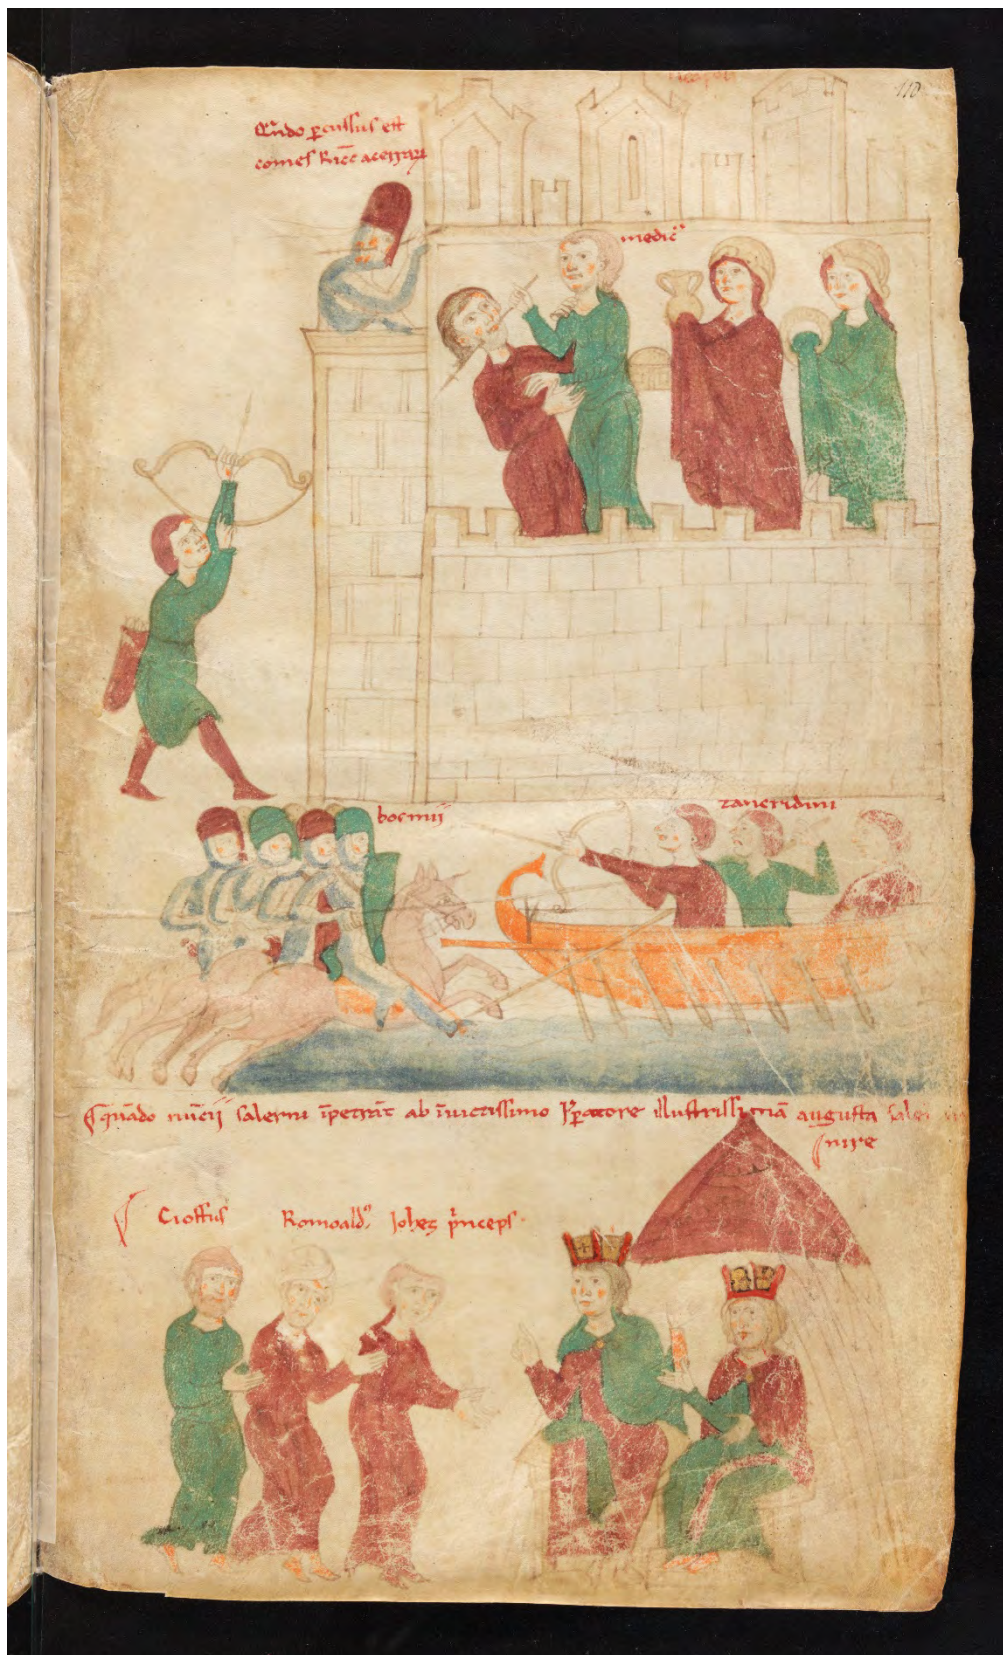 neapoli
110
Qñdo ꝑcussus est
comes Ricc̄ acerraꝝ
medic᾿
boemii
tancridini
Q̄ñado nūcii salerni īpetrāt ab īuictissimo Īꝑatore illustrissimā augusta
nire
Cioffus Romoaldꝰ Iohēs p̄nceps